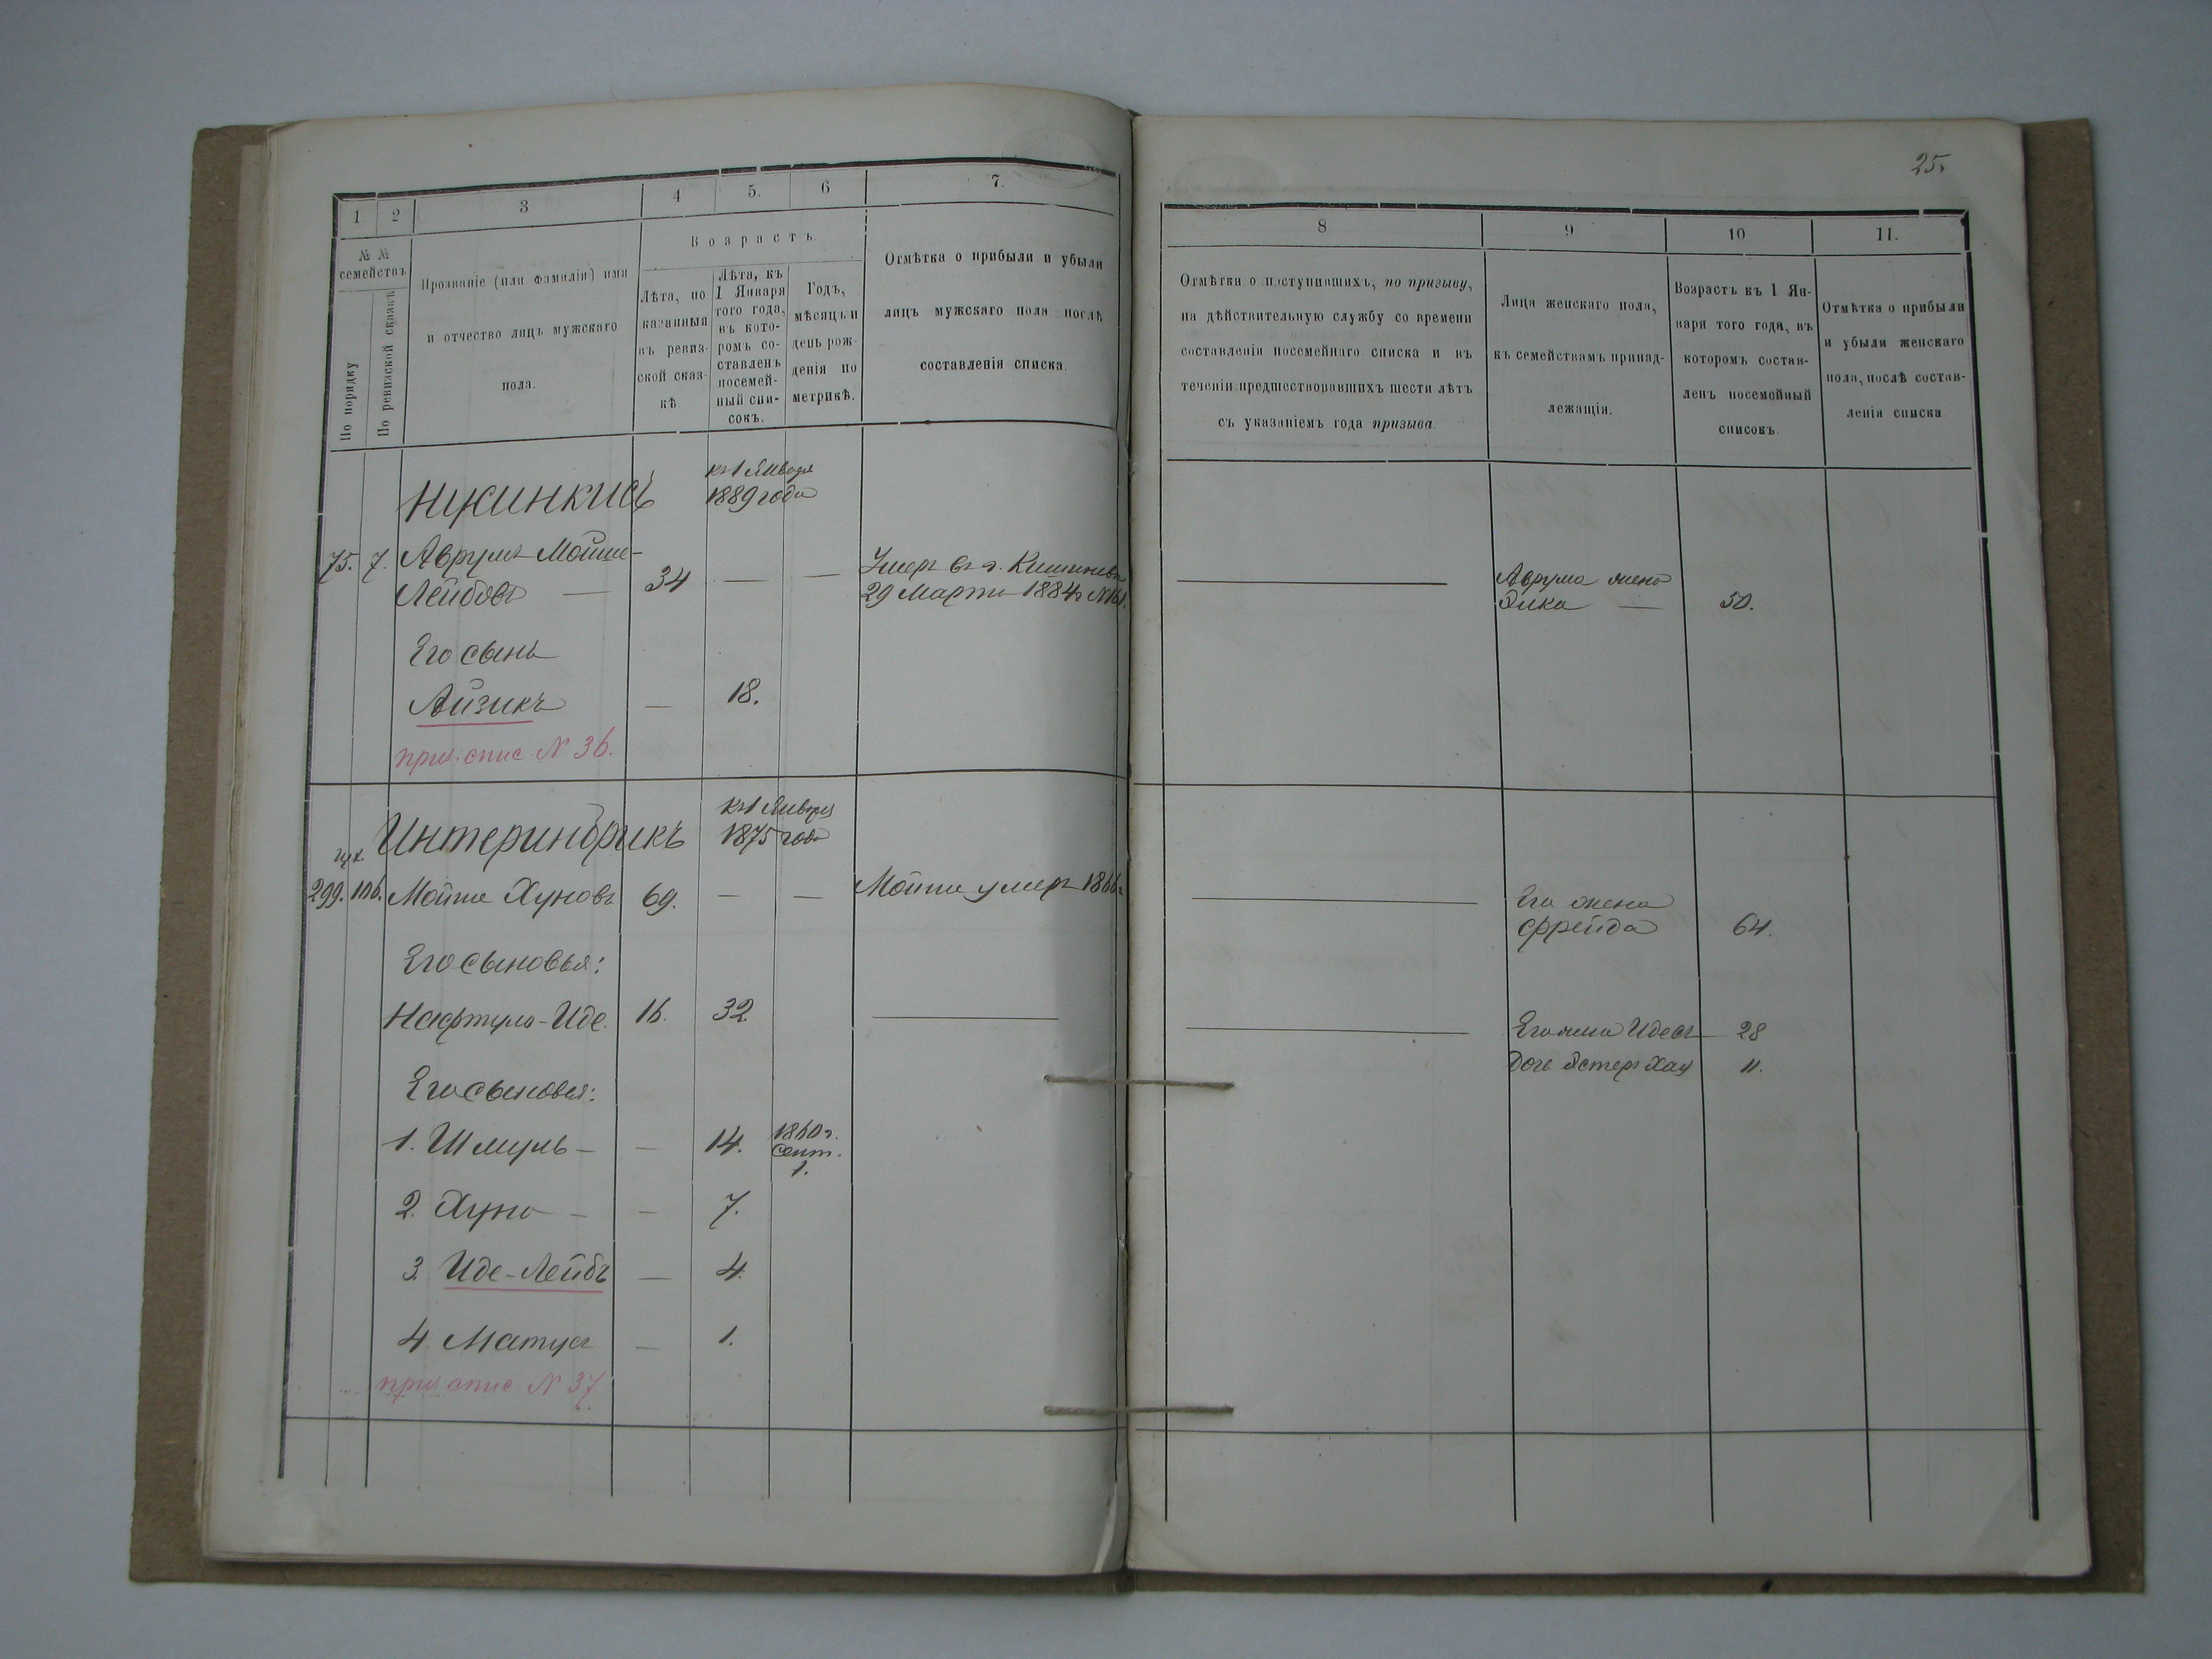 25.
1 2 3 4 5. 6 7.
№ № семействъ
По порядку
По ревизской сказкѣ
Прозваніе (или фамилія) имя
и отчество лицъ мужскаго
пола.
Возрастъ.
Лѣта, по
казанныя
въ ревиз-
ской сказ-
кѣ
Лѣта, къ
1 Января
того года,
въ кото-
ромъ со-
ставленъ
посемей-
ный спи-
сокъ.
Годъ,
мѣсяцъ и
день рож-
денія по
метрикѣ.
Отмѣтка о прибыли и убыли
лицъ мужскаго пола послѣ
составленія списка.
8 9 10 11.
Отмѣтки о поступившихъ, по призыву,
на дѣйствительную службу со времени
составленія посемейнаго списка и въ
теченіи предшествовавшихъ шести лѣтъ
съ указаніемъ года призыва.
Лица женскаго пола,
къ семействамъ принад-
лежащія.
Возрастъ къ 1 Ян-
варя того года, въ
которомъ состав-
ленъ посемейный
списокъ.
Отмѣтка о прибыли
и убыли женскаго
пола, послѣ состав-
ленія списка
къ 1 Января
1889 года
75. 7. Аврумъ Мойше-
Лейбовъ — 34 — —
Умеръ въ г. Кишиневѣ
29 Марта 1884 г
Аврума жена
50.
Его сынъ
Айзикъ — 18.
приз. спис № 36.
къ 1 Января
1875 года
Интериндрикъ
299. 106. Мойше Хуновъ 69. — — Мойше умеръ 1866 г
Его жена
Фрейда 64.
Его сыновья:
Нафтула-Иде. 16. 32.
Его жена Идесъ 28
Дочь Эстеръ Хая 11.
Его сыновья:
1. Шмуль — — 14. 1860 г.
Сент.
1.
2. Хуна — — 7.
3. Иде-Лейбъ — 4.
4. Матусъ — 1.
приз спис № 37.